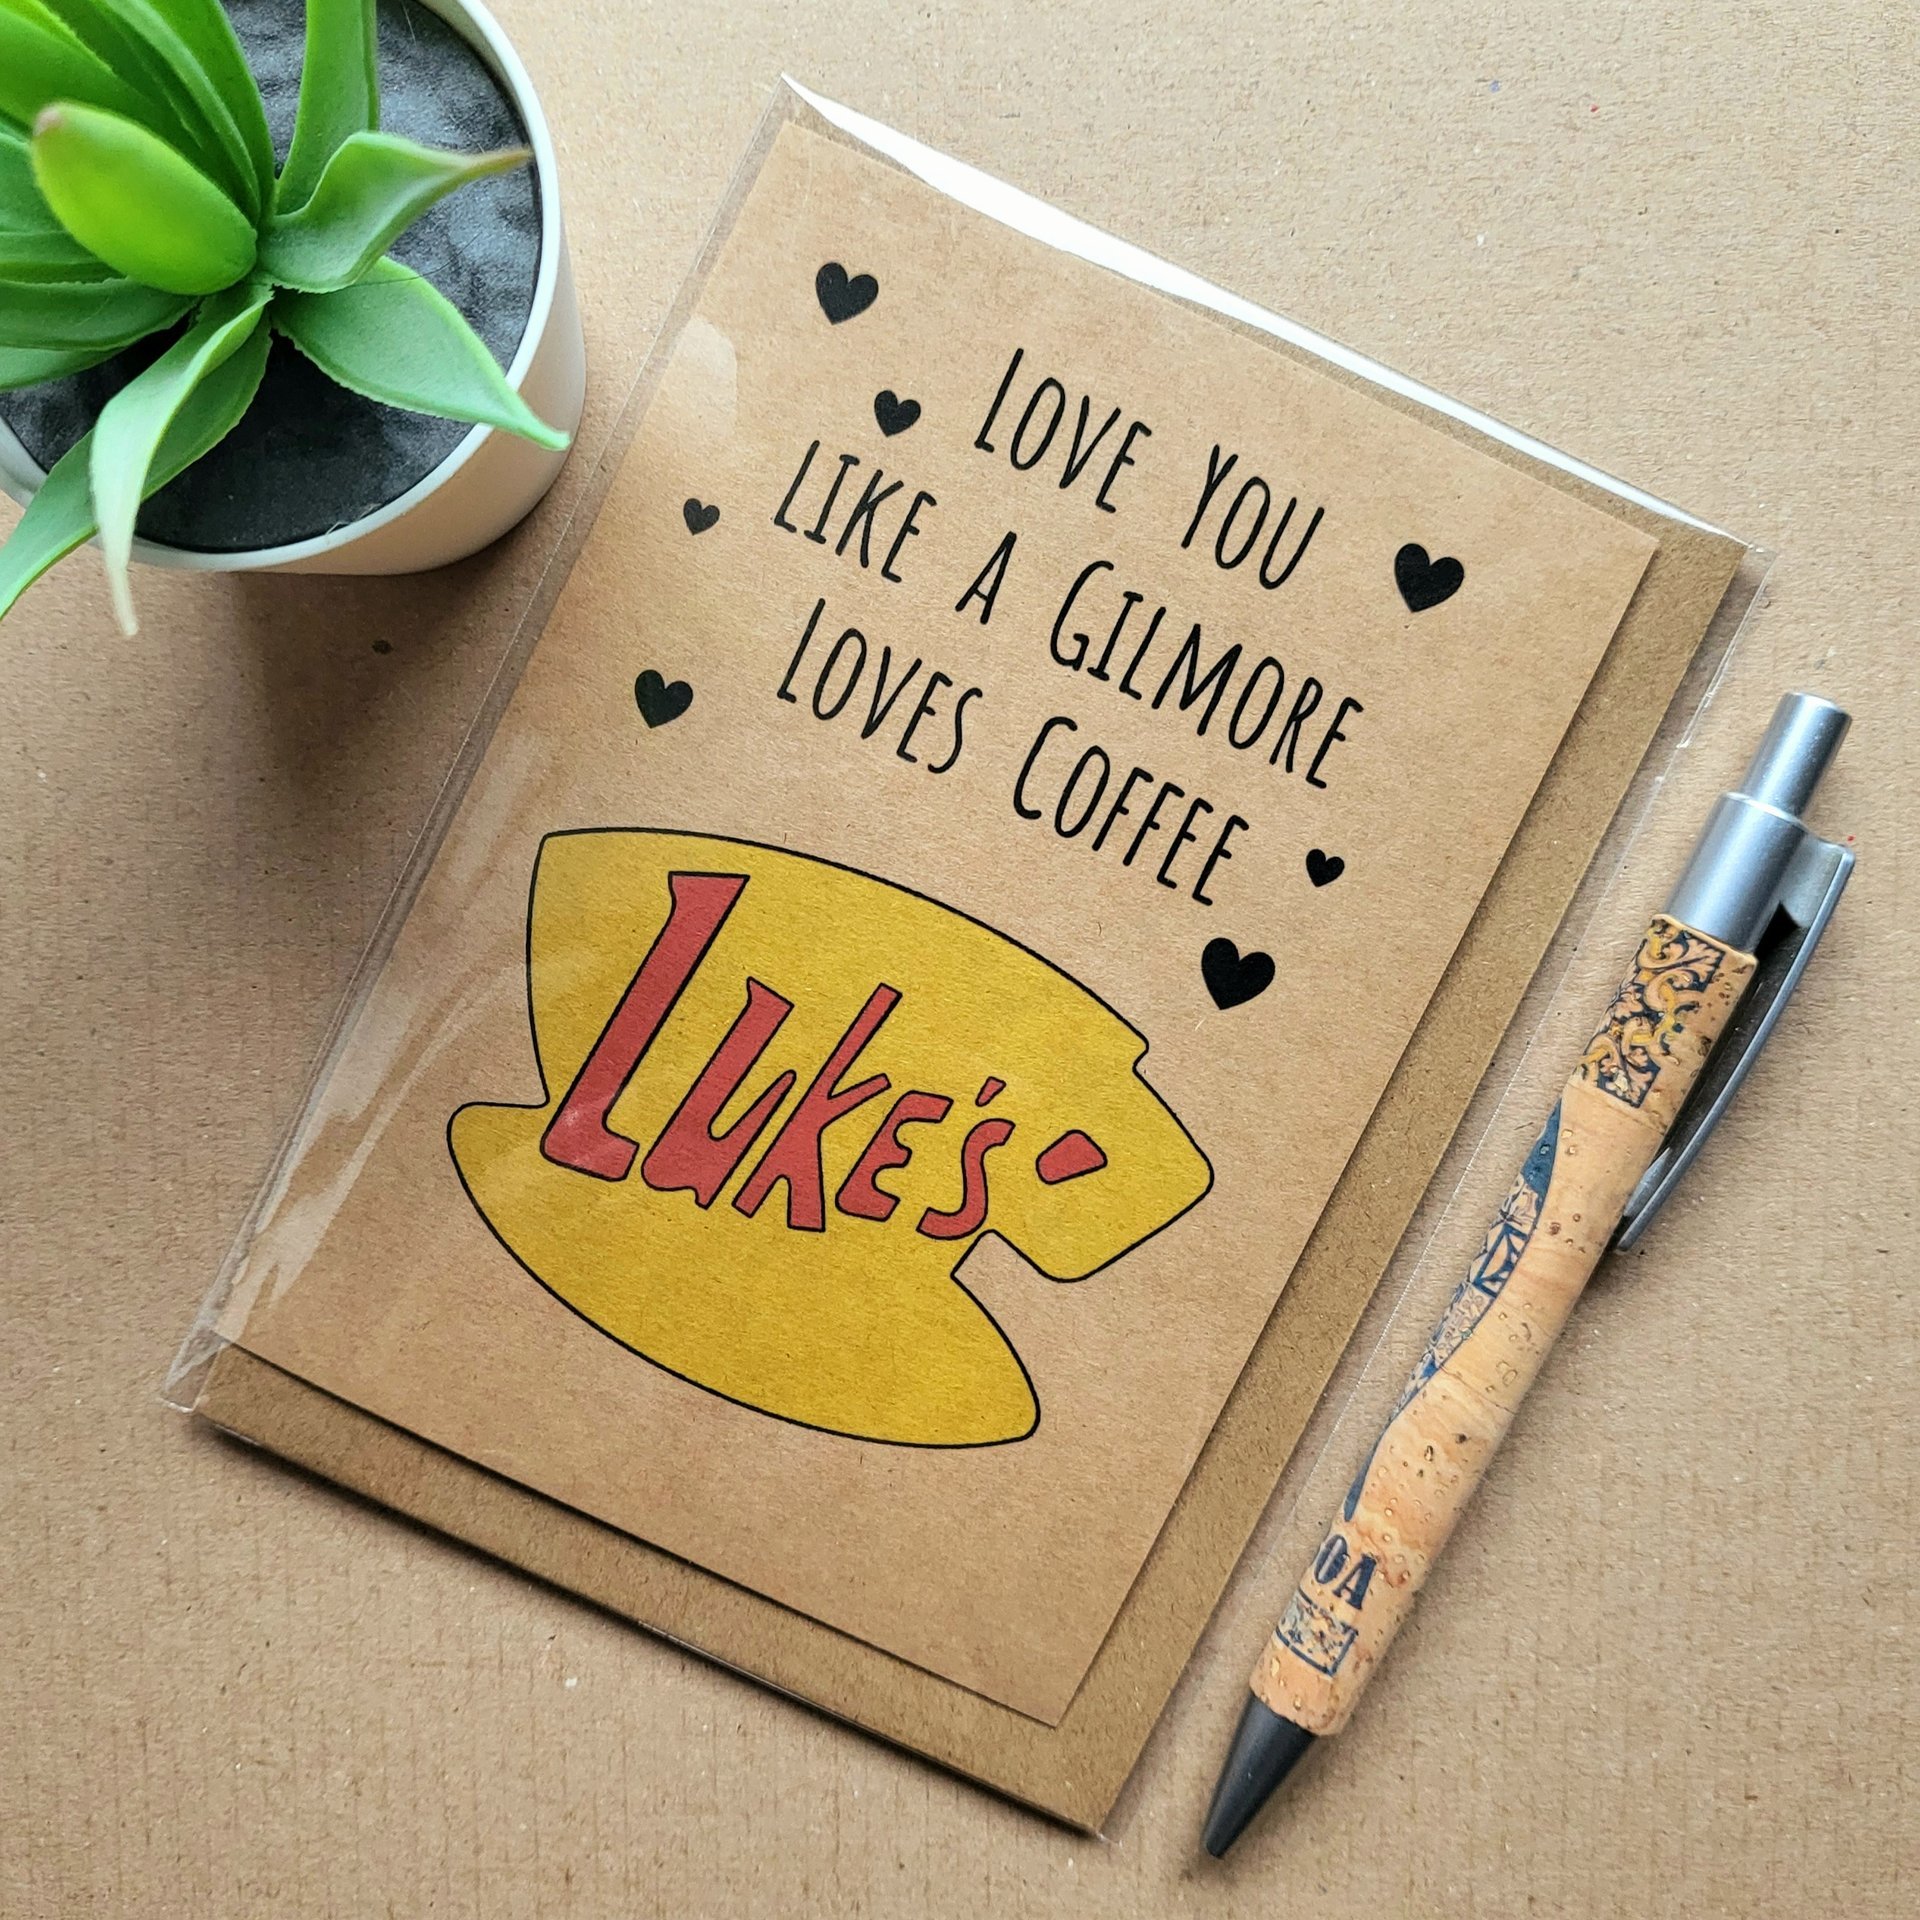 LOVE YOU
LIKE A GILMORE
LOVES COFFEE
LUKE'S
OA